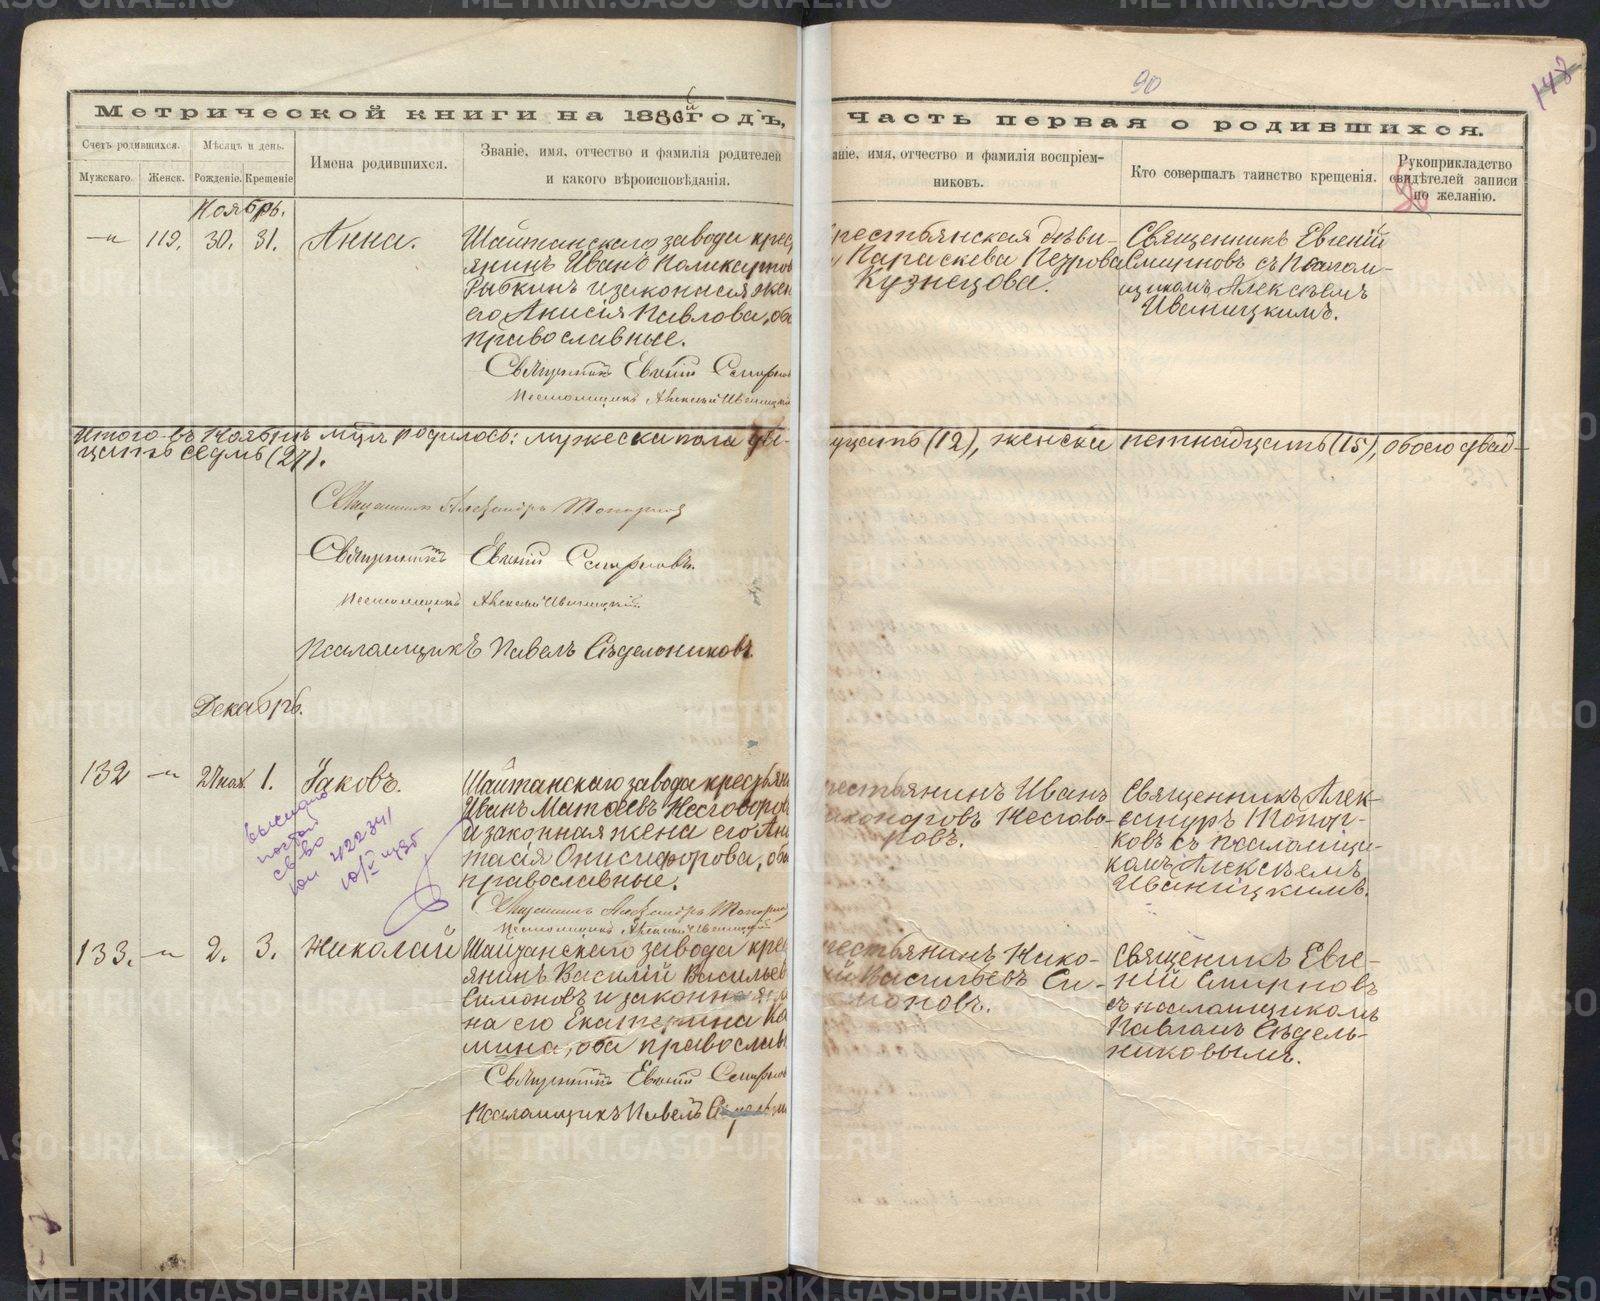 90
148
Метрической книги на 1886й годъ,
часть первая о родившихся.
Счетъ родившихся.
Мѣсяцъ и день.
Имена родившихся.
Званіе, имя, отчество и фамилія родителей
и какого вѣроисповѣданія.
Мужскаго.
Женск.
Рожденіе.
Крещеніе
аніе, имя, отчество и фамилія воспріем-
никовъ.
Кто совершалъ таинство крещенія.
Рукоприкладство
свидѣтелей записи
по желанію.
Ноябрь.
119. 30. 31. Анна.
Шайтанскаго завода крес
янинъ Иванъ Поликарпов
Рыбкинъ и законная жен
его Анисія Павлова, об
православные.
Священникъ Евгеній Смирнов
Псаломщикъ Алексѣй Иваницкі
крестьянская дѣви-
Параскева Петрова
Кузнецова.
Священникъ Евгеній
Смирновъ съ Псалом-
щикомъ Алексѣемъ
Иваницкимъ.
Итого въ Ноябрѣ мцѣ родилось: мужеска пола две-
надцать (12), женска пятнадцать (15), обоего двад-
цать седмь (27).
Священникъ Александръ Топорковъ
Священникъ Евгеній Смирновъ.
Псаломщикъ Алексѣй Иваницкій.
Псаломщикъ Павелъ Сѣдельниковъ.
Декабрь.
132 27 нояб. 1. Іаковъ.
Шайтанскаго завода крестьян
Иванъ Матѳеевъ Несговоров
и законная жена его Ана
тасія Онисифорова, оба
православные.
Священникъ Александръ Топорко
Псаломщикъ Алексѣй Иваницкій
рестьянинъ Иванъ
Несгово-
ровъ.
Священникъ Алек-
сандръ Топор-
ковъ съ псаломщи-
комъ Алексѣемъ
Иваницкимъ.
42231
133. 2. 3. Николай
Шайтанскаго завода крес
янинъ Василій Васильев
Симоновъ и законная же
на его Екатерина
мина, оба православ
Священникъ Евгеній Смирнов
Псаломщикъ Павелъ
рестьянинъ Нико-
й Васильевъ Си-
моновъ.
Священникъ Евге-
ній Смирновъ
съ псаломщикомъ
Павломъ Сѣдель-
никовымъ.
METRIKI.GASO-URAL.RU